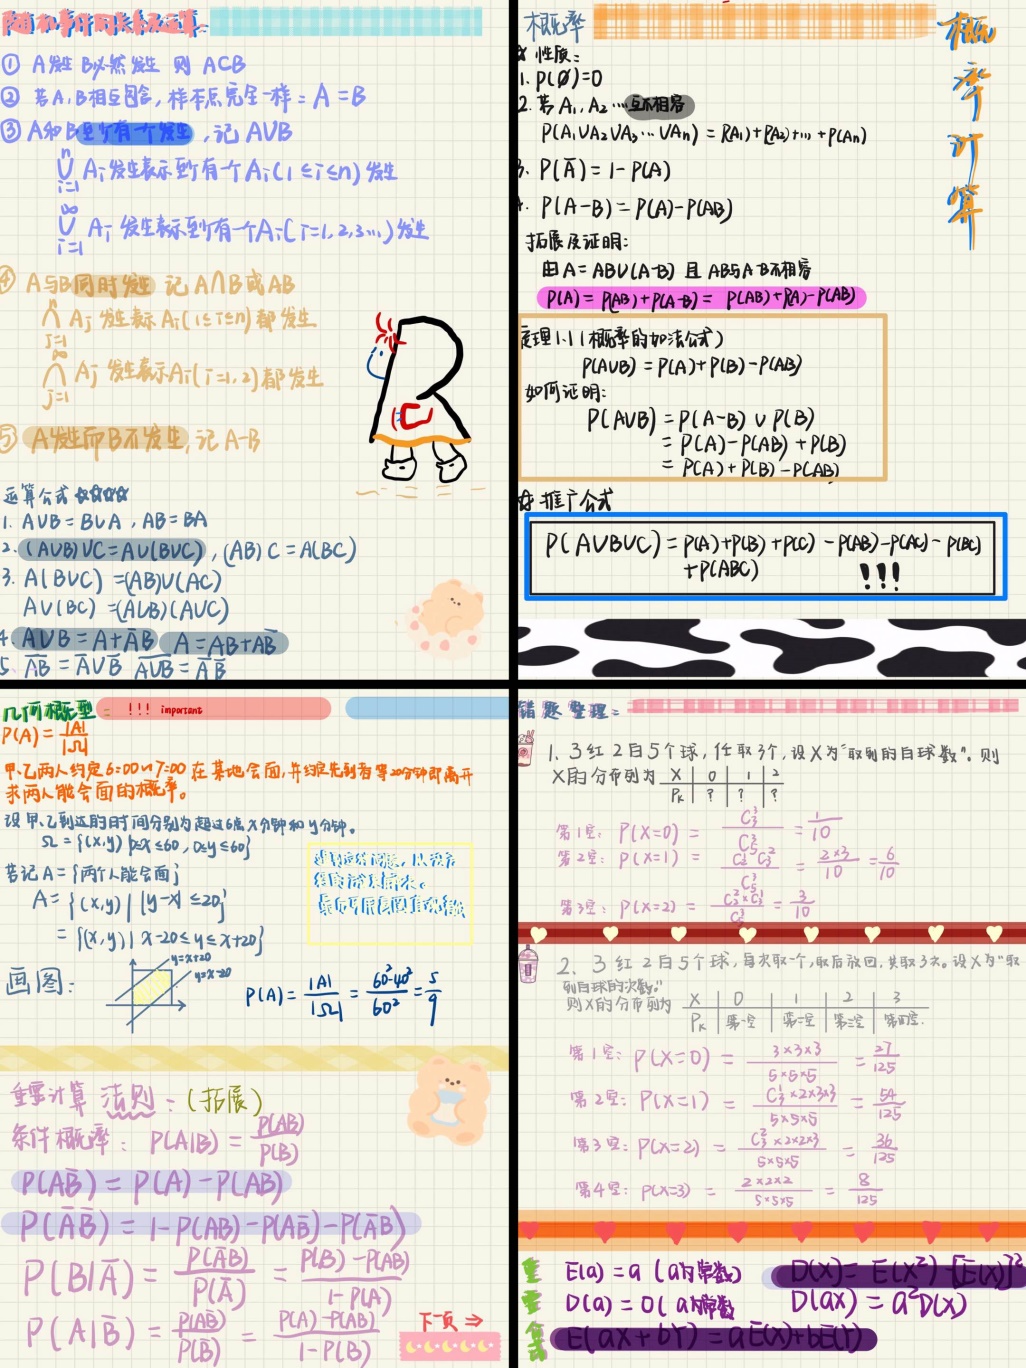 随机事件的关系及运算
① A发生 B必然发生 则 A⊂B
② 若A,B相互包含,样本点完全一样:A=B
③ A和B至少有一个发生,记 A∪B
n∪i=1 Ai发生表示至少有一个Ai(1≤i≤n)发生
∞∪i=1 Ai 发生表示至少有一个Ai(i=1,2,3…)发生
④ A与B同时发生 记 A∩B或AB
n∩j=1 Aj 发生表示 Ai(1≤i≤n)都发生
∞∩j=1 Aj 发生表示Ai(i=1,2)都发生
⑤ A发生而B不发生,记 A-B
运算公式☆☆☆☆
1. A∪B=B∪A,AB=BA
2. (A∪B)∪C=A∪(B∪C),(AB)C=A(BC)
3. A(B∪C)=(AB)∪(AC)
A∪(BC)=(A∪B)(A∪C)
4. A∪B=A+A̅B A=AB+AB̅
5. A̅B̅=A̅∪B̅ A̅∪̅B̅=A̅ B̅
概率
概率计算
☆ 性质:
1. P(∅)=0
2. 若 A1,A2…互不相容
P(A1∪A2∪A3…∪An)=P(A1)+P(A2)+…+P(An)
3. P(A̅)=1-P(A)
4. P(A-B)=P(A)-P(AB)
拓展及证明:
由A=AB∪(A-B) 且 AB与A-B不相容
P(A)=P(AB)+P(A-B)=P(AB)+P(A)-P(AB)
定理1.1(概率的加法公式)
P(A∪B)=P(A)+P(B)-P(AB)
如何证明:
P(A∪B)=P(A-B)∪P(B)
=P(A)-P(AB)+P(B)
=P(A)+P(B)-P(AB)
☆推广公式
P(A∪B∪C)=P(A)+P(B)+P(C)-P(AB)-P(AC)-P(BC)
+P(ABC) !!!
几何概型: !!! important
P(A)=|A|/|Ω|
甲、乙两人约定6:00~7:00在某地会面,并约定先到者等20分钟即离开
求两人能会面的概率。
设甲、乙到达的时间分别为超过6点X分钟和y分钟。
Ω={(x,y)|0≤x≤60,0≤y≤60}
若记A={两个人能会面}
A={(x,y)||y-x|≤20}
={(x,y)|x-20≤y≤x+20}
画图:
y=x+20
y=x-20
P(A)=|A|/|Ω|=60²-40²/60²=5/9
重要计算法则:(拓展)
条件概率:P(A|B)=P(AB)/P(B)
P(AB̅)=P(A)-P(AB)
P(A̅B̅)=1-P(AB)-P(AB̅)-P(A̅B)
P(B|A̅)=P(A̅B)/P(A̅)=P(B)-P(AB)/1-P(A)
P(A|B̅)=P(AB̅)/P(B̅)=P(A)-P(AB)/1-P(B)
下一页⇒
错题整理:
1. 3红2白5个球,任取3个,设X为“取到的白球数”。则
X的分布列为 X 0 1 2
Pk ? ? ?
第1空:P(X=0)=C³₃/C³₅=1/10
第2空:P(X=1)=C¹₂C²₃/C³₅=2×3/10=6/10
第3空:P(X=2)=C²₂×C¹₃/C³₅=3/10
2. 3红2白5个球,每次取一个,取后放回,共取3次。设X为“取
到白球的次数。”
则X的分布列为 X 0 1 2 3
Pk 第一空 第二空 第三空 第四空.
第1空:P(X=0)=3×3×3/5×5×5=27/125
第2空:P(X=1)=C¹₃×2×3×3/5×5×5=54/125
第3空:P(X=2)=C²₃×2×2×3/5×5×5=36/125
第4空:P(X=3)=2×2×2/5×5×5=8/125
E(a)=a(a为常数) D(X)=E(X²)-[E(X)]²
D(a)=0(a为常数 D(aX)=a²D(X)
E(aX+bY)=aE(X)+bE(Y)